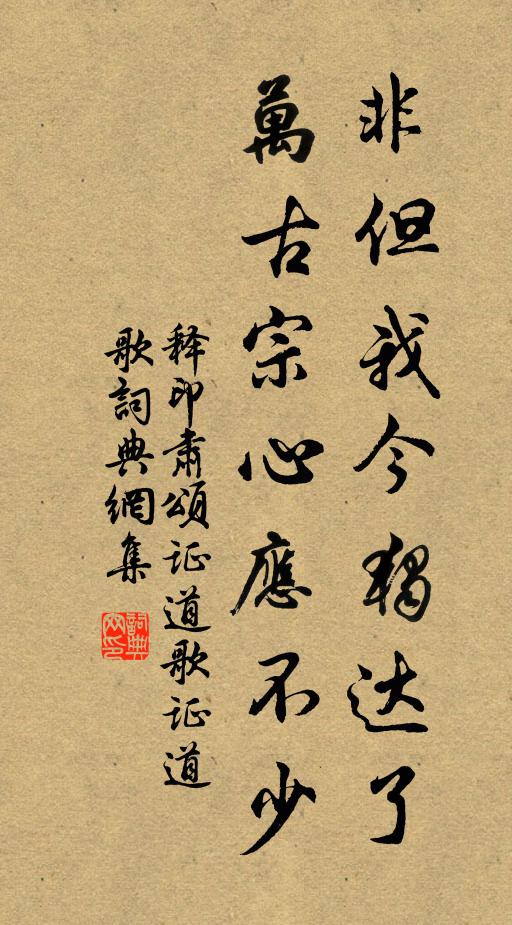 非但我今獨达了
萬古宗心應不少
释印肃頌证道歌证道
歌詞典網集
詞典
网印